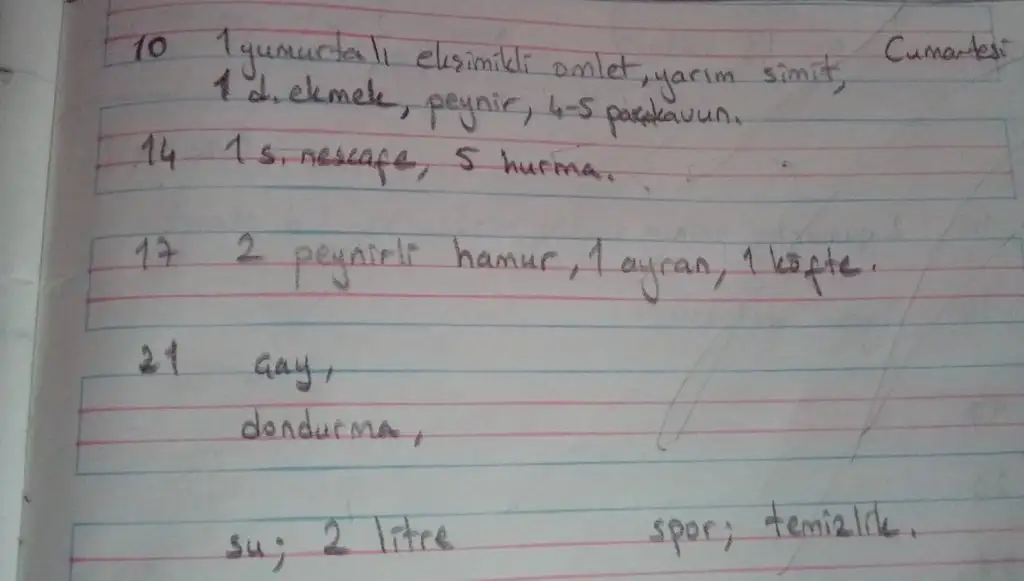 10 1 yumurtalı ekşimikli omlet, yarım simit, Cumartesi
1 d. ekmek, peynir, 4-5 parça kavun.
14 1 s. nescafe, 5 hurma.
17 2 peynirli hamur, 1 ayran, 1 köfte.
21 çay,
dondurma,
su; 2 litre spor; temizlik.